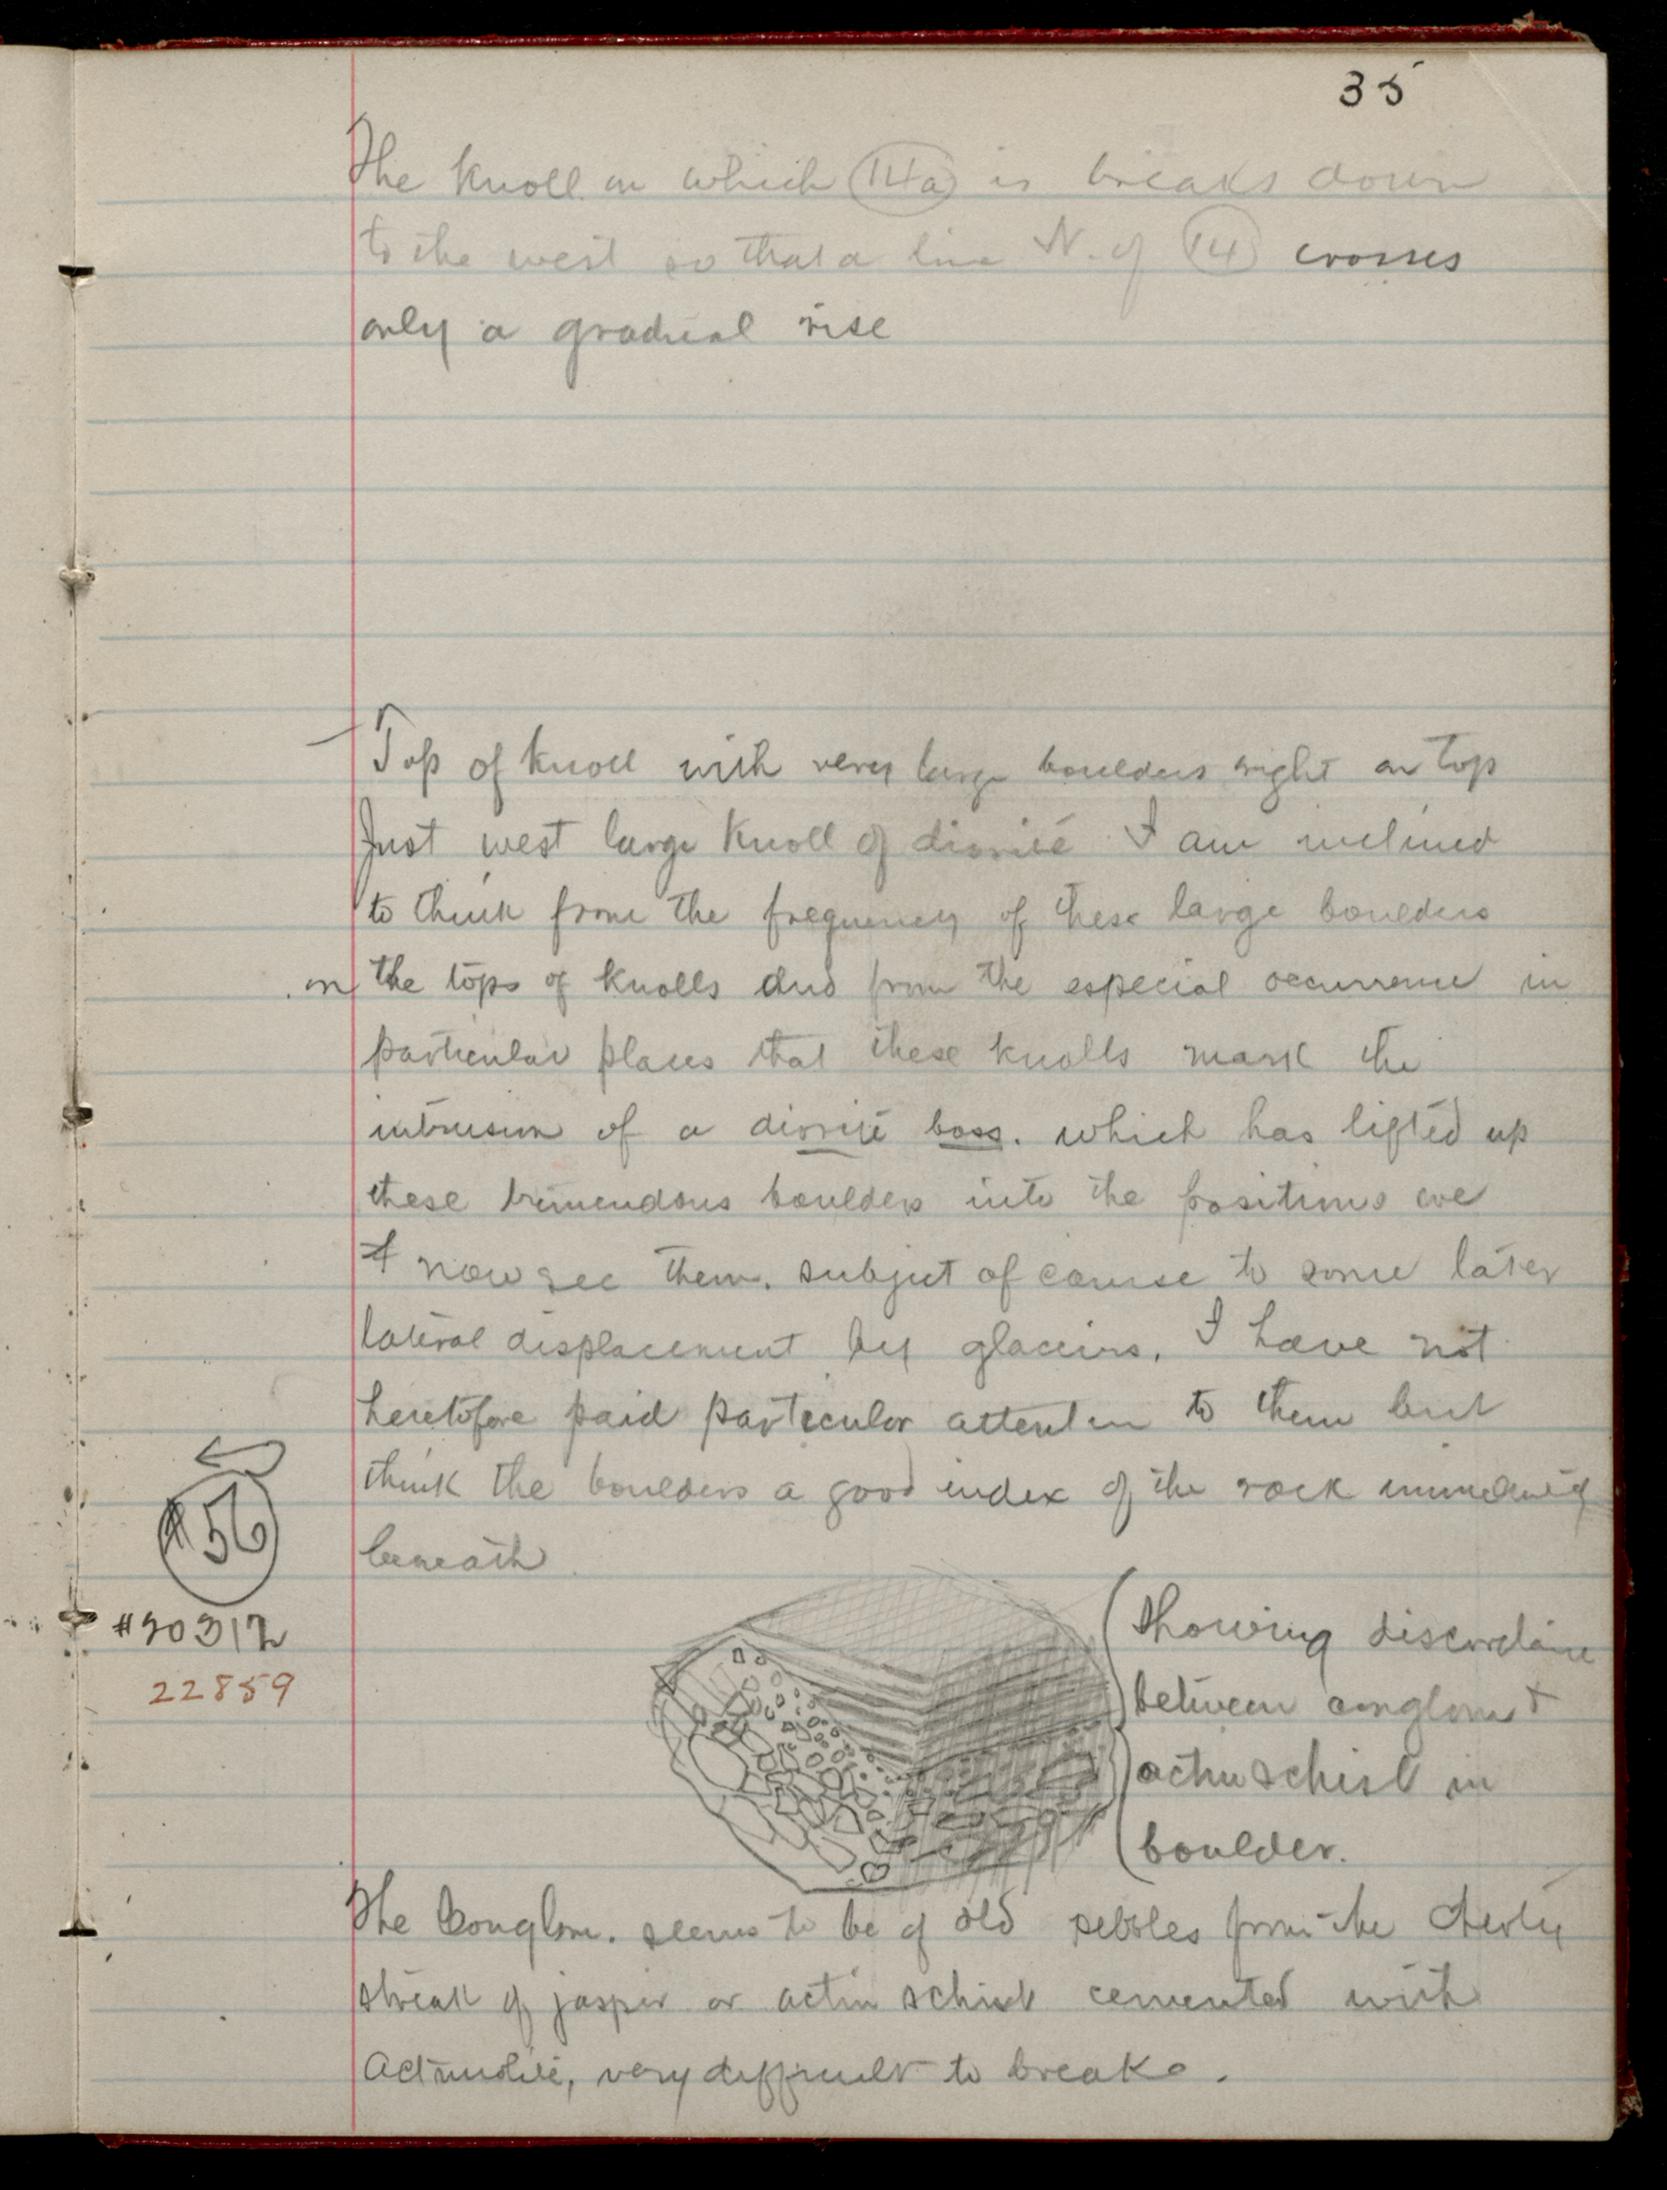 35
The knoll on which (14a) is breaks down
to the west so that a line N. of (14) crosses
only a gradual rise
Top of knoll with very large boulders right on top
Just west large knoll of diorite I am inclined
to think from the frequency of these large boulders
on the tops of knolls and from the especial occurrence in
particular places that these knolls mark the
intrusion of a diorite boss. which has lifted up
these tremendous boulders into the positions we
now see them. subject of course to some later
lateral displacement by glaciers. I have not
heretofore paid particular attention to them but
think the boulders a good index of the rock immediately
beneath
56
#20312
22859
Showing discordance
between conglom &
actin schist in
boulder.
The Conglom. seems to be of old pebbles from the cherty
streak of jasper or actin schist cemented with
Actinolite, very difficult to break.